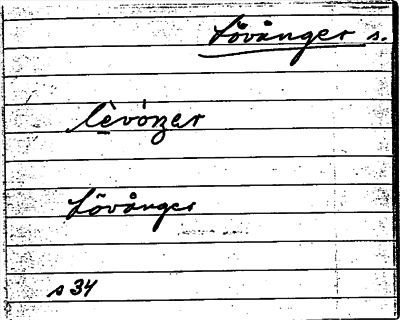 Lövånger s.
lèvóŋer
Lövånger
s 34